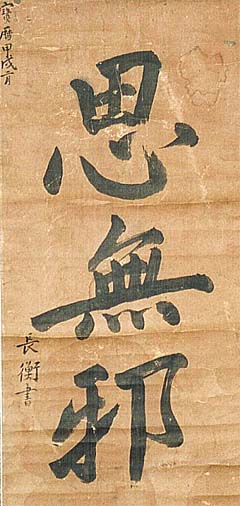 思無邪
寶曆甲戌月
長衡書